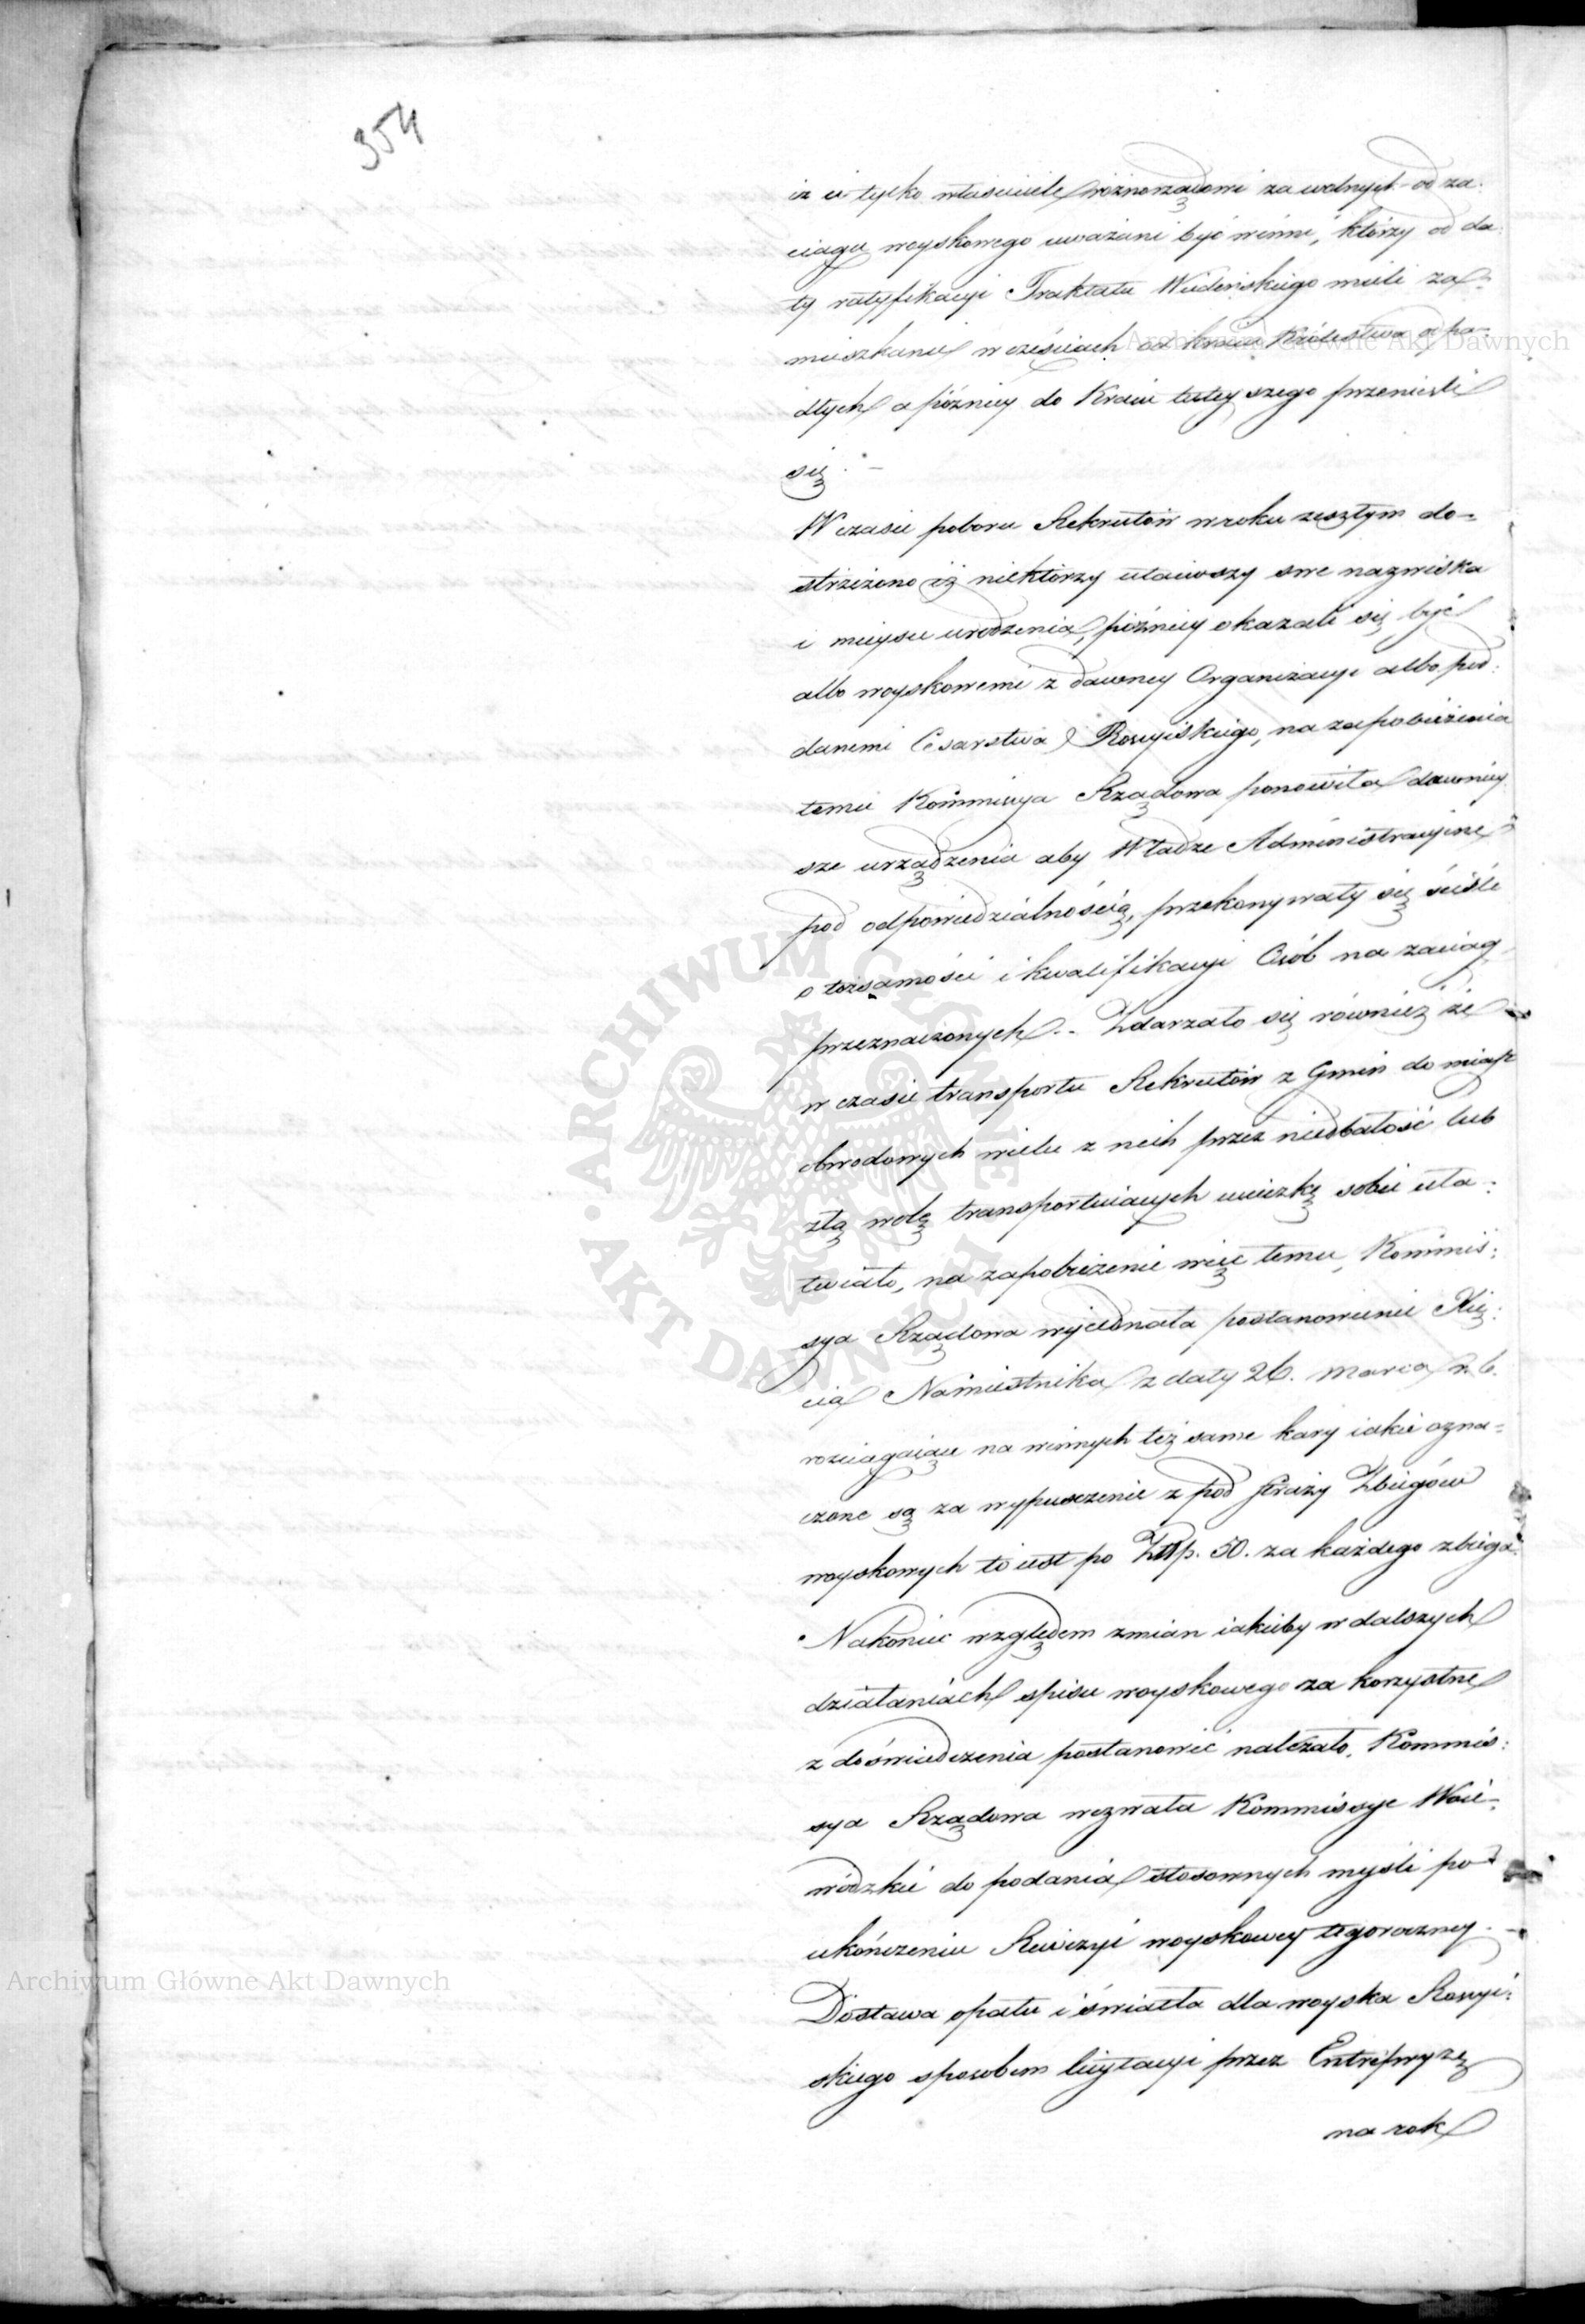 354
iż ci tylko właściciele różnorządowi za wolnych od za:
ciągu woyskowego uważani być winni, którzy od da:
ty ratyfikacyi Traktatu Wiedeńskiego mieli za:
mieszkanie w częściach od kraiu Królestwa odpa:
dłych a później do Kraiu tuteyszego przenieśli
się. —
W czasie poboru Rekrutów w roku zeszłym do=
strzeżono iż niektórzy utaiwszy swe nazwiska
i mieysce urodzenia, późniey okazali się być
albo woyskowemi z dawney Organizacyi albo pod:
danemi Cesarstwa Rossyiskiego, na zapobieżenie
temu Kommissya Rządowa ponowiła dawniey
sze urządzenia aby Władze Administracyine
pod odpowiedzialnością, przekonywały się ściśle
o tożsamości i kwalifikacyi Osób na zaciąg
przeznaczonych. - Zdarzało się również że
w czasie transportu Rekrutów z Gmin do miast
obwodowych wielu z nich przez niedbałość lub
złą wolę transportuiących ucieczkę sobie uła:
twiało, na zapobieżenie więc temu, Kommis:
sya Rządowa wyjednała postanowienie Xię:
cia Namiestnika z daty 26. marca r. b.
rozciągaiące na winnych też same kary iakie ozna=
czone są za wypuszczenie z pod straży Zbiegów
woyskowych to iest po Złp. 50. za każdego zbiega.
Nakoniec względem zmian iakieby w dalszych
działaniach spisu woyskowego za korzystne
z doświadczenia postanowić należało, Kommis:
sya Rządowa wezwała Kommissye Woie=
wódzkie do podania stosownych myśli po
ukończeniu Rewizyi woyskowey tegoroczney. —
Dostawa opału i światła dla woyska Rossyi:
skiego sposobem licytacyi przez Entrepryzę
na rok
Archiwum Główne Akt Dawnych
ARCHIWUM GŁÓWNE
AKT DAWNYCH
Archiwum Główne Akt Dawnych